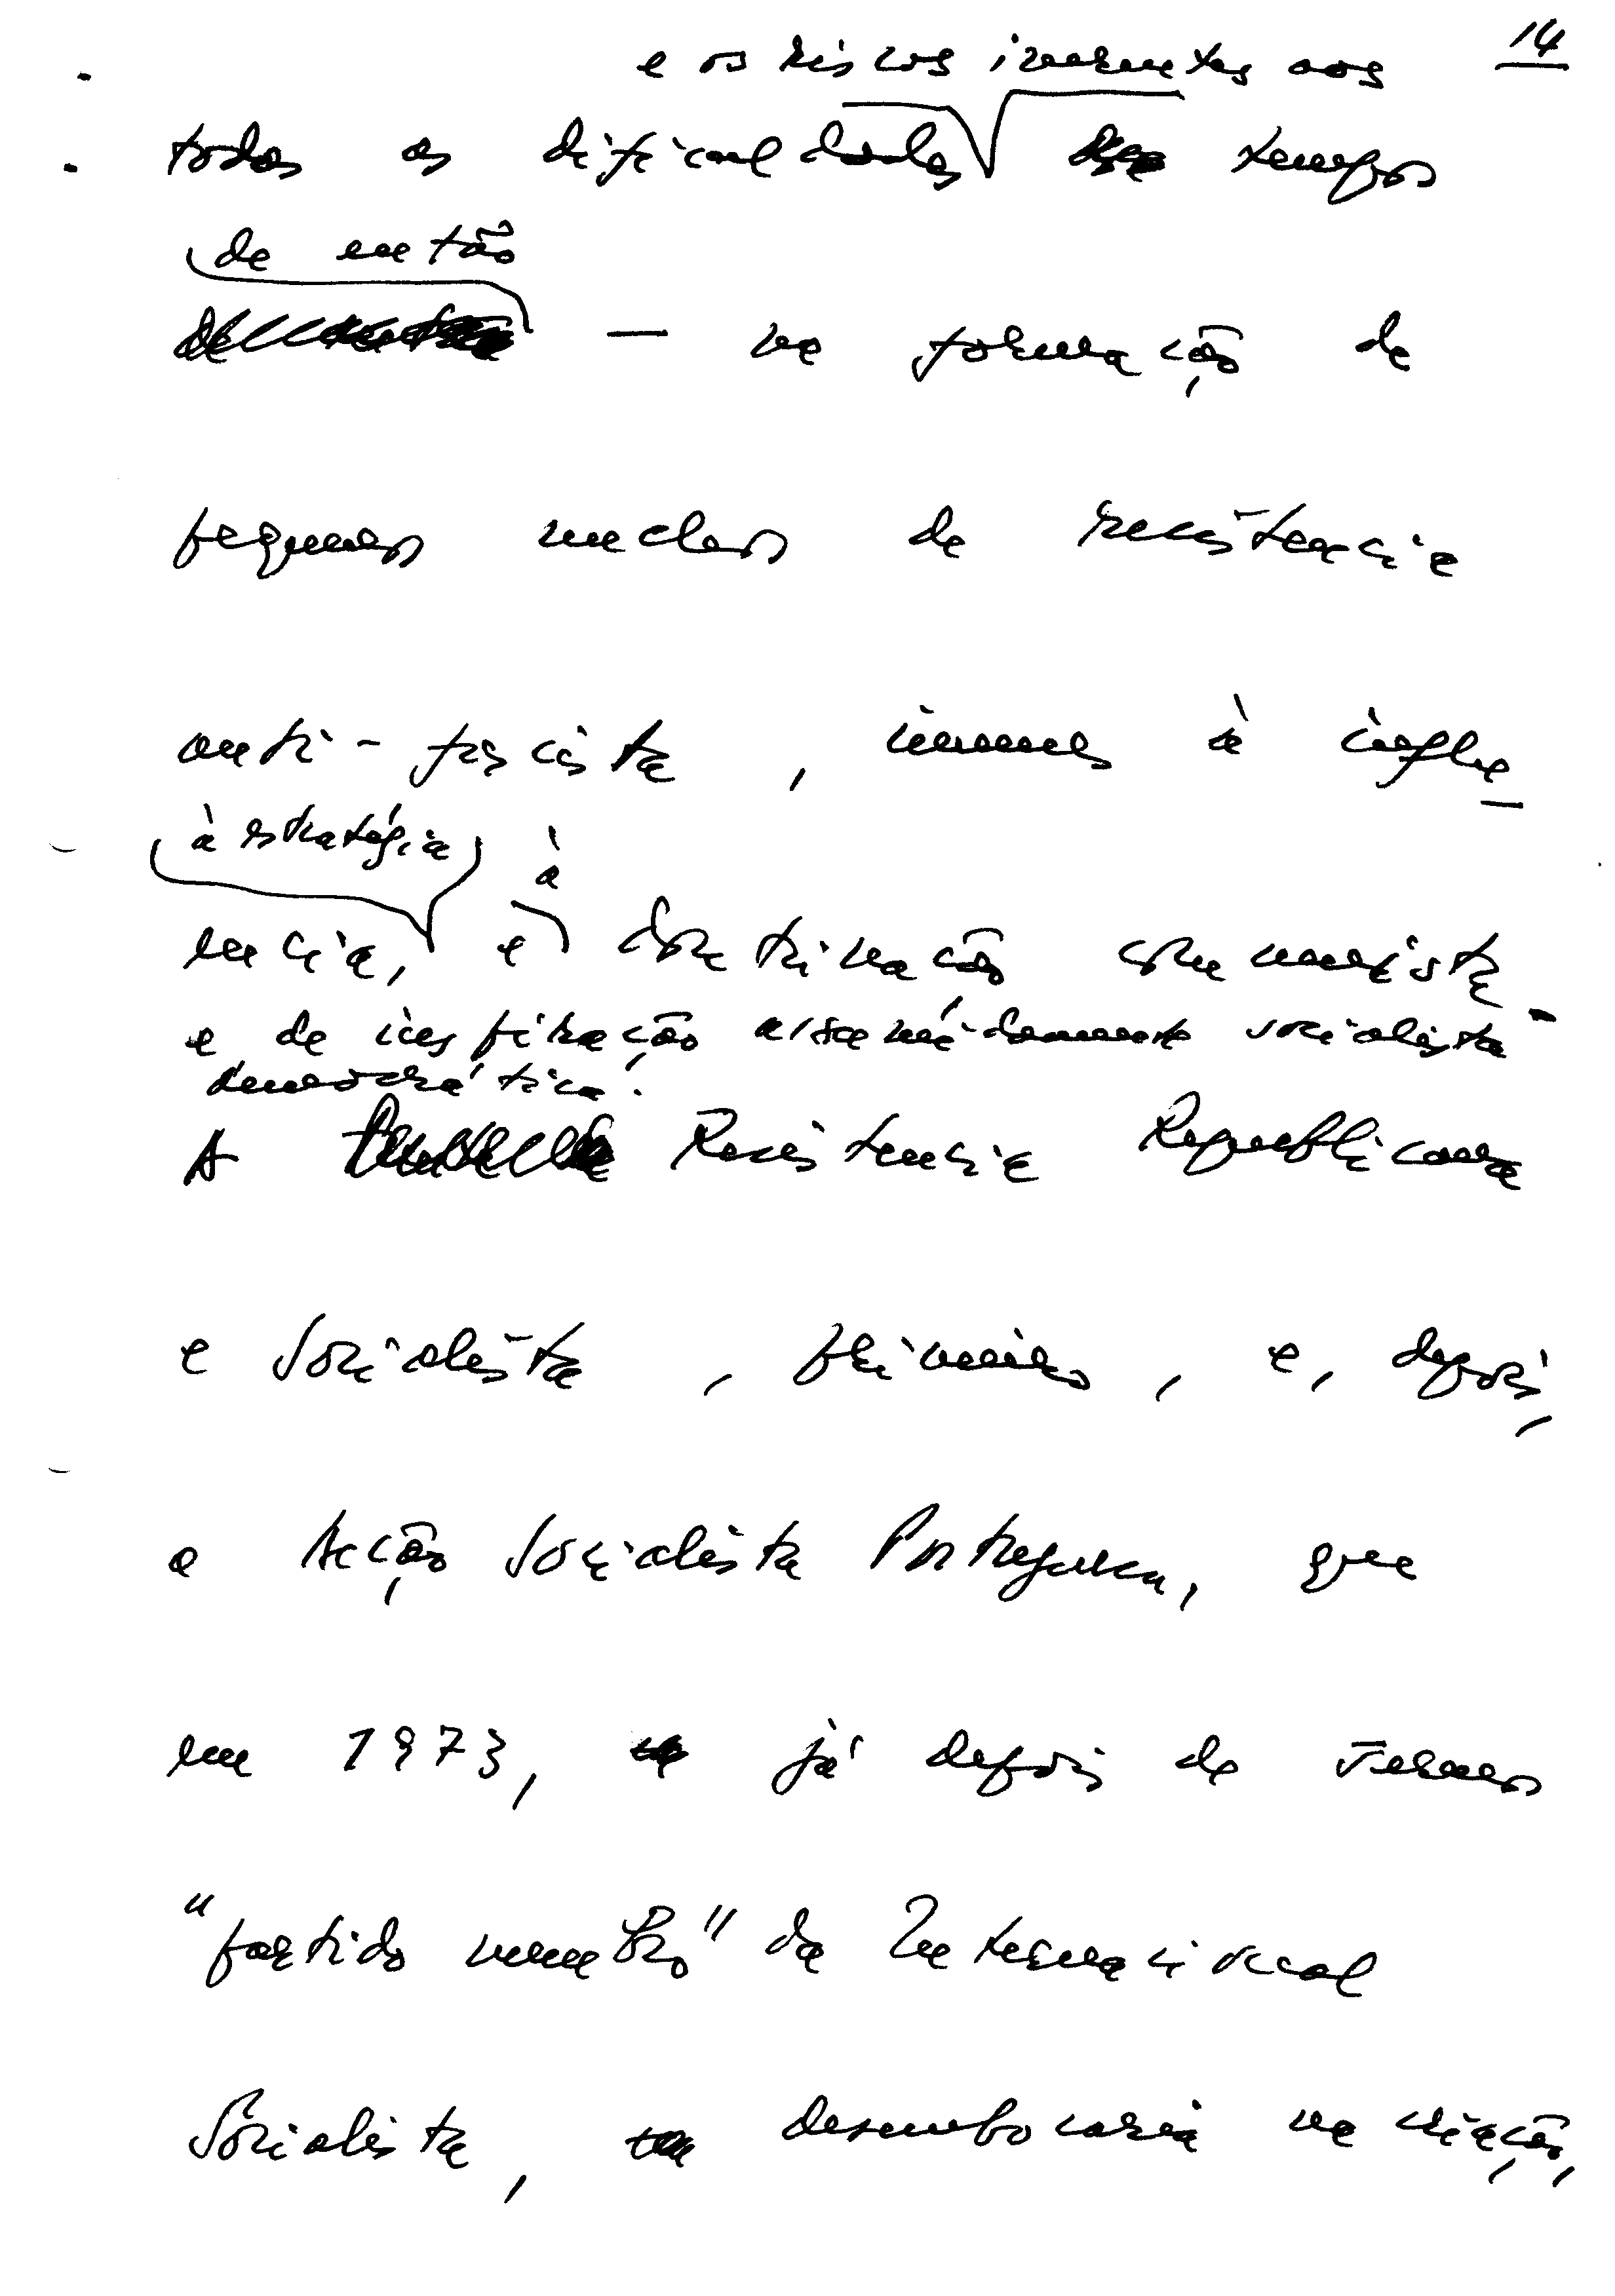 14
e os riscos inerentes aos
todas as dificuldades tempos
de então
— na formação de
pequenos nucleos de resistencia
anti-fascista, imunes à influ-
à estratégia à
encia, e doutrinação comunista
e de inspiração assumidamente socialista
democrática.
A Resistencia Republicana
e Socialista, primeiro, e, depois,
a Acção Socialista Portuguesa, que
em 1973, já depois de sermos
"partido membro" da Internacional
Socialista, desembocaria na criação,